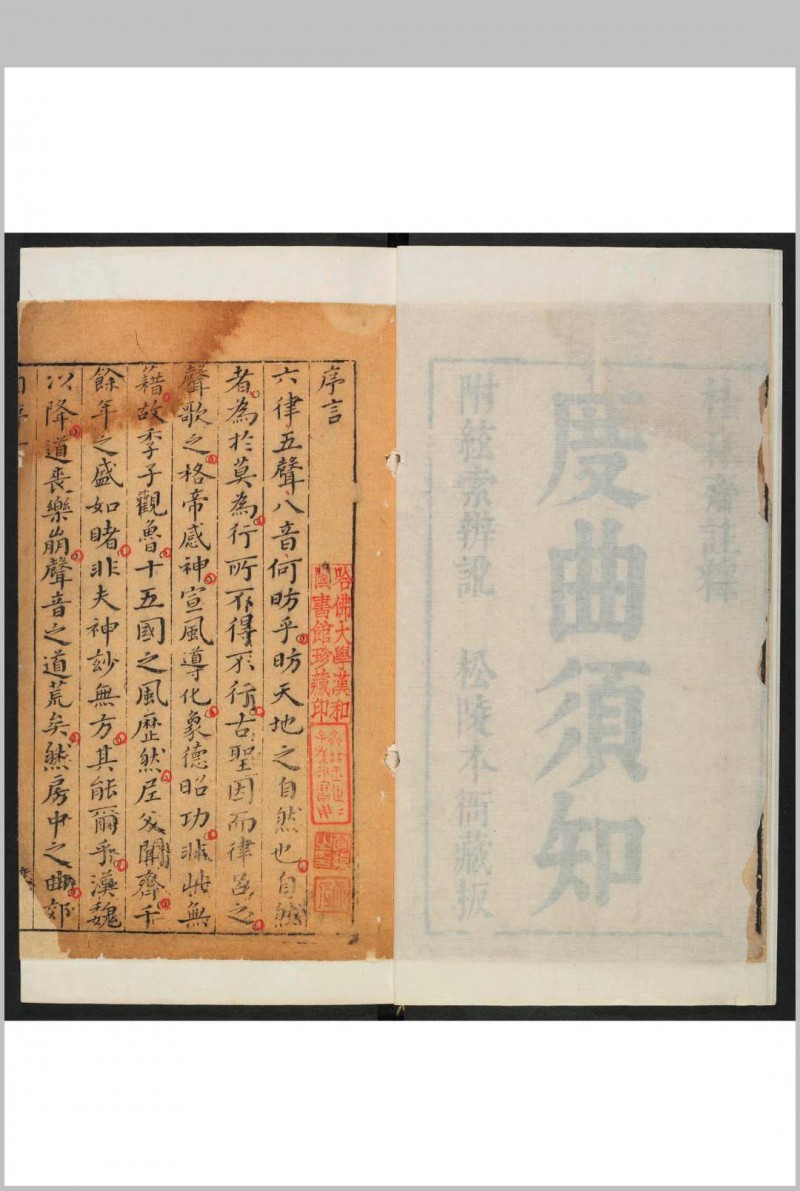 齋註釋
度曲須知
附絃索辨訛 松陵本衙藏板
序言
哈佛大學漢和
圖書館珍藏印
六律五聲八音何昉乎昉天地之自然也自然
者為於莫為行所不得不行古聖因而律呂之
聲歌之格帝感神宣風導化象德昭功非此無
籍故季子觀魯十五國之風歷然尼父聞齊千
餘年之盛如睹非夫神玅無方其能爾乎漢魏
以降道喪樂崩聲音之道荒矣然房中之曲郊